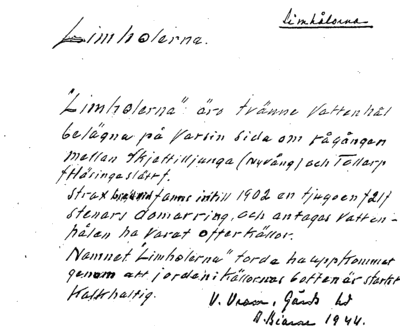 Limhålorna
Limholerna.
"Limholerna": äro tvänne vattenhål
belägna på varsin sida om rågången
mellan Skjettilljunga (nyvång) och Tollarp
Strax fanns intill 1902 en tjugoen /21/
stenars domarring, och antagas vatten-
hålen ha varat offerkällor.
Namnet "Limholerna" torde ha uppkommet
genom att jorden i källornas botten är starkt
Kalkhaltig.
V. Vram, Gärds hd
1944.